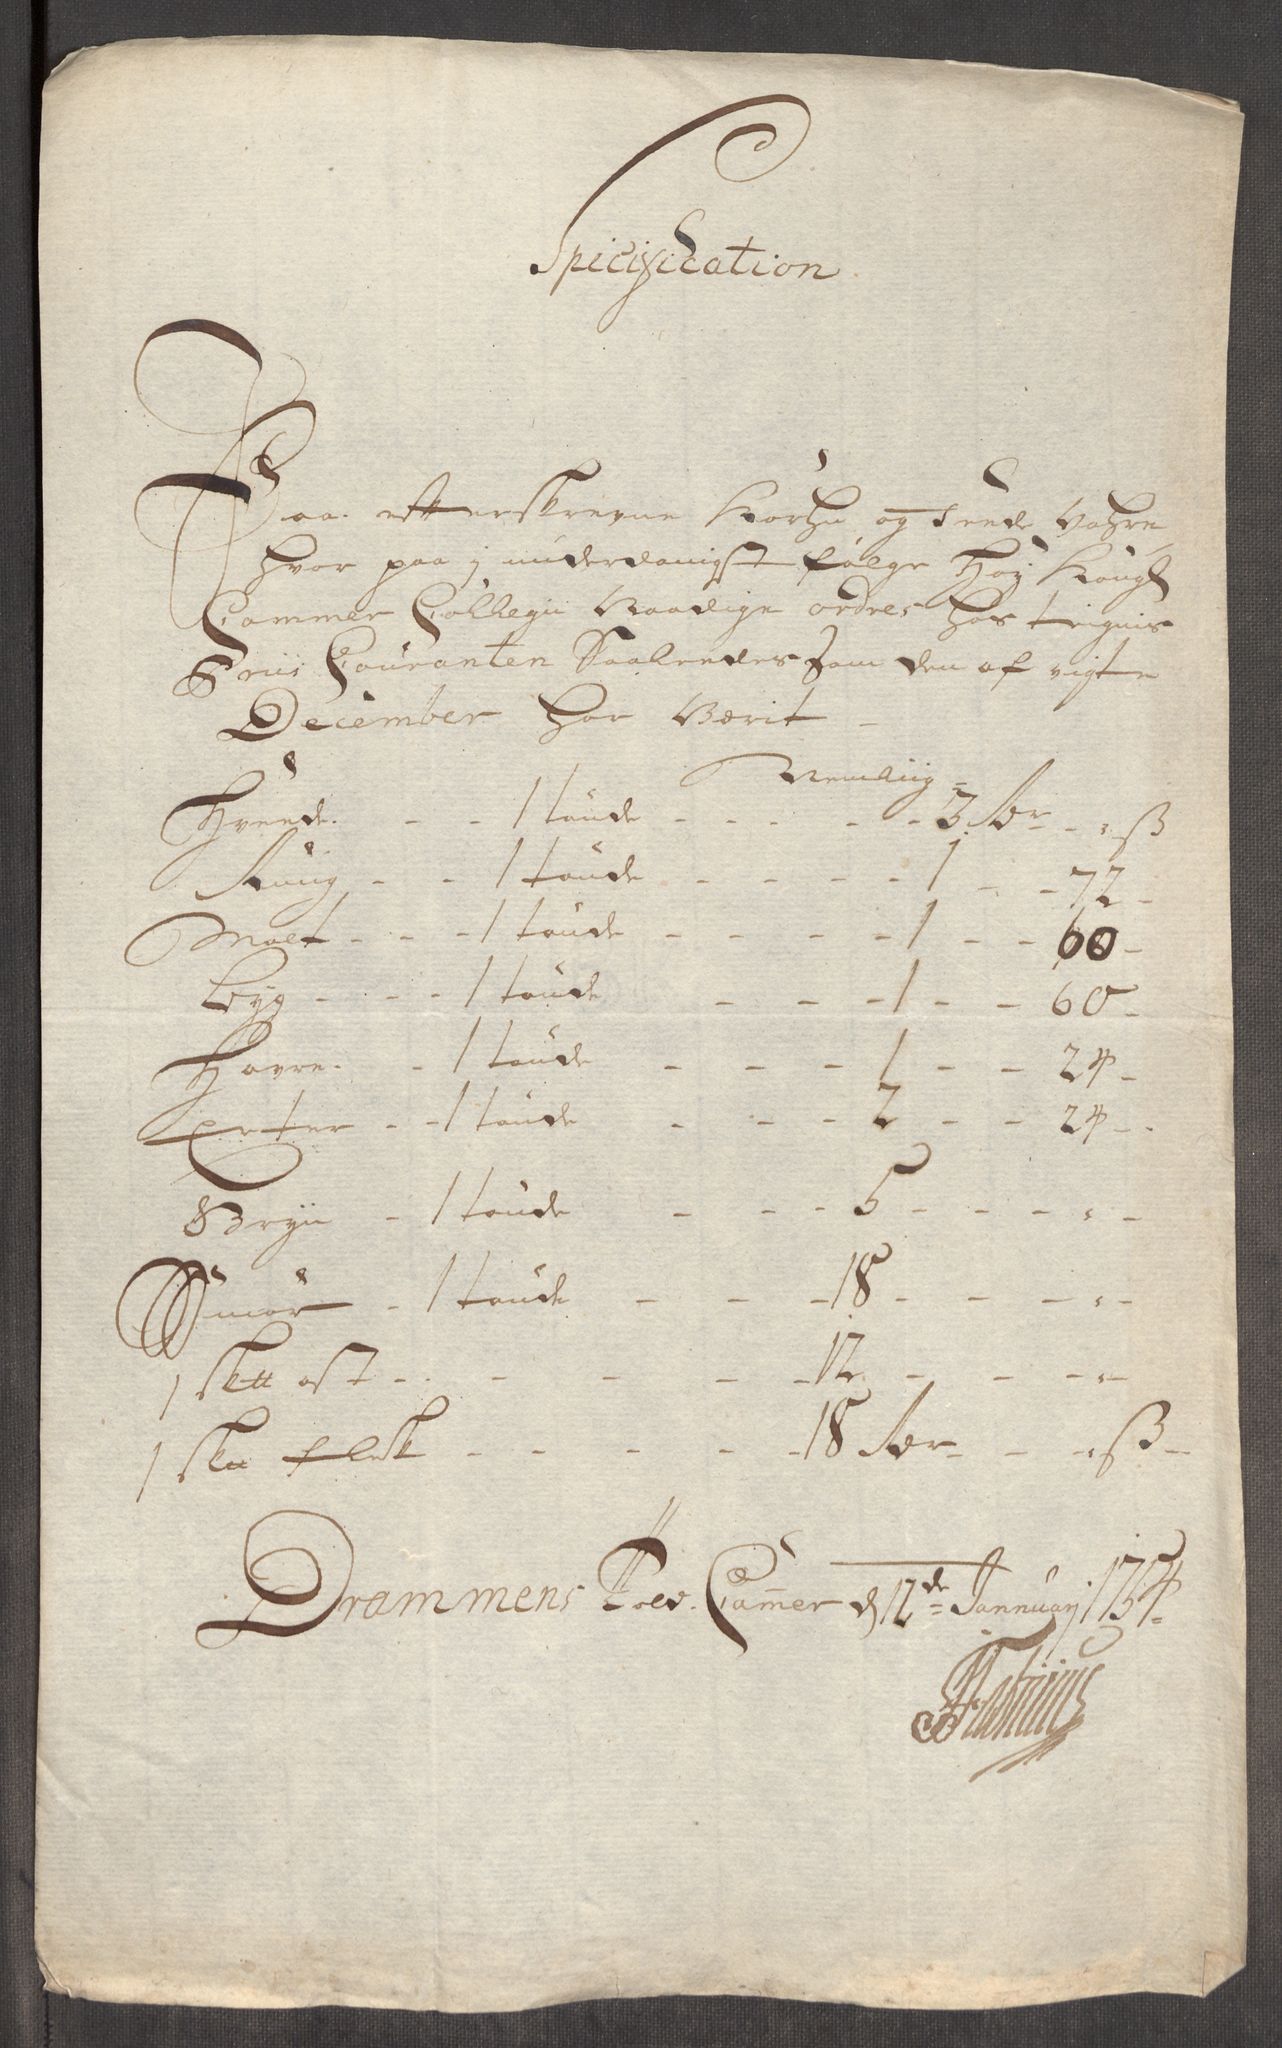 Specification
Paa efterskrevne Korhn og Fede Vahre
hvor paa j underdanigst følge Høy Kongl
Cammer Collegii Naadige ordres hos teignis
Priis Couranten Saaledes som den af vigte
December har Værit -
Nemblig =
Hvede. - - 1 tønde - - - - - 3 rdr - - „ ß
Rung - - 1 tønde - - - - 1 - - 72 -
Malt - - - 1 tønde - - - - 1 - - 60 -
Byg - - - 1 tønde - - - 1 - - 60 -
Havre. - 1 tønde - - - 1 - - 24 -
Erter - - 1 tønde - - - 2 - - 24 - -
Gryn - 1 tønde - - - 5 - - - „ -
Smør - 1 tønde - - - 18 - - - „ -
1 sk℔ ost - - - - - - 12 - - - „ -
1 sk℔ flesk - - - - - 18 rdr - - „ ß -
Drammens Told Cammer d 12de Jannuarj 1754